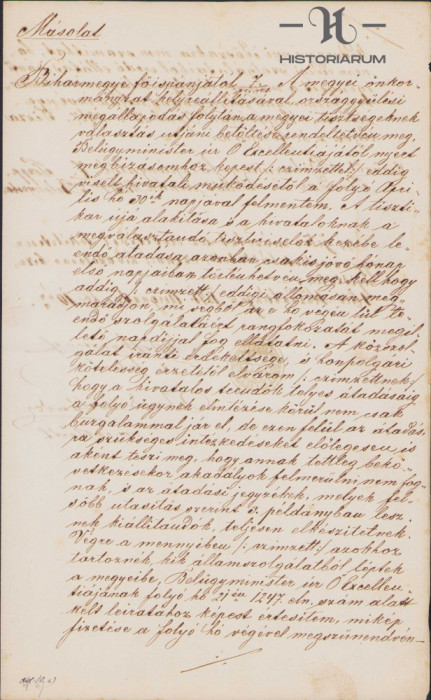 — H —
HISTORIARUM
Másolat
Biharmegye főispánjától A megyei önkor-
mányzat helyreállításával, országgyülési
megállapodás folytán a megyei tisztségeknek
választás utjáni betöltése rendeltetvén meg,
Belügyminister úr Ő Excellentiájától nyert
megbizásomhoz képest /: czimzettet :/ eddig
viselt hivatali müködésétől a folyó Ápri-
lis hó 30ik napjával felmentem. A tiszti-
kar úja alakitása s a hivataloknak a
megválasztandó tisztviselők kezébe le-
endő átadása azonban csakis jövő hónap
első napjaiban történhetvén meg, kell hogy
addig /: czimzett :/ eddigi állomásán meg-
maradjon, mi végből az e hó végén túl te-
endő szolgálatáért rangfokozatát megil-
lető napdíjjal fog elláttatni. A közszol-
gálat iránti érdekeltsége, s honpolgári
kötelesség érzetétől elvárom /: czimzettnek :/
hogy a hivatalos teendők teljes átadásáig
a folyó ügynek elintézése körül nem csak
buzgalommal jár el, de ezen felül az átadás-
ra szükséges intézkedéseket előlegesen is
akként teszi meg, hogy annak tettleg bekö-
vetkezésekor akadályok felmerülni nem fog-
nak, s az átadási jegyzékek, melyek fel-
sőbb utasitás szerint 3. példányban lesz-
nek kiállitandók, teljesen elkészitetnek.
Végre a mennyiben /: czimzett :/ azokhoz
tartoznék, kik államszolgálatból léptek
a megyeibe, Belügyminister úr Ő Excellen-
tiájának folyó hó 1247 eln. szám alatt
kelt leiratához képest értesitem, mikép
fizetése a folyó hó végével megszünendvén—